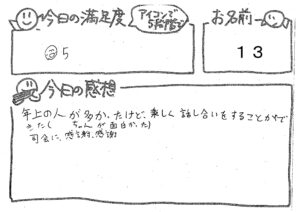 今日の満足度
アイコンで
5段階
☺5
お名前
13
今日の感想
年上の人が多かったけど、楽しく話し合いをすることがで
きた(　　ちゃんが面白かった)
司会に、感謝、感謝